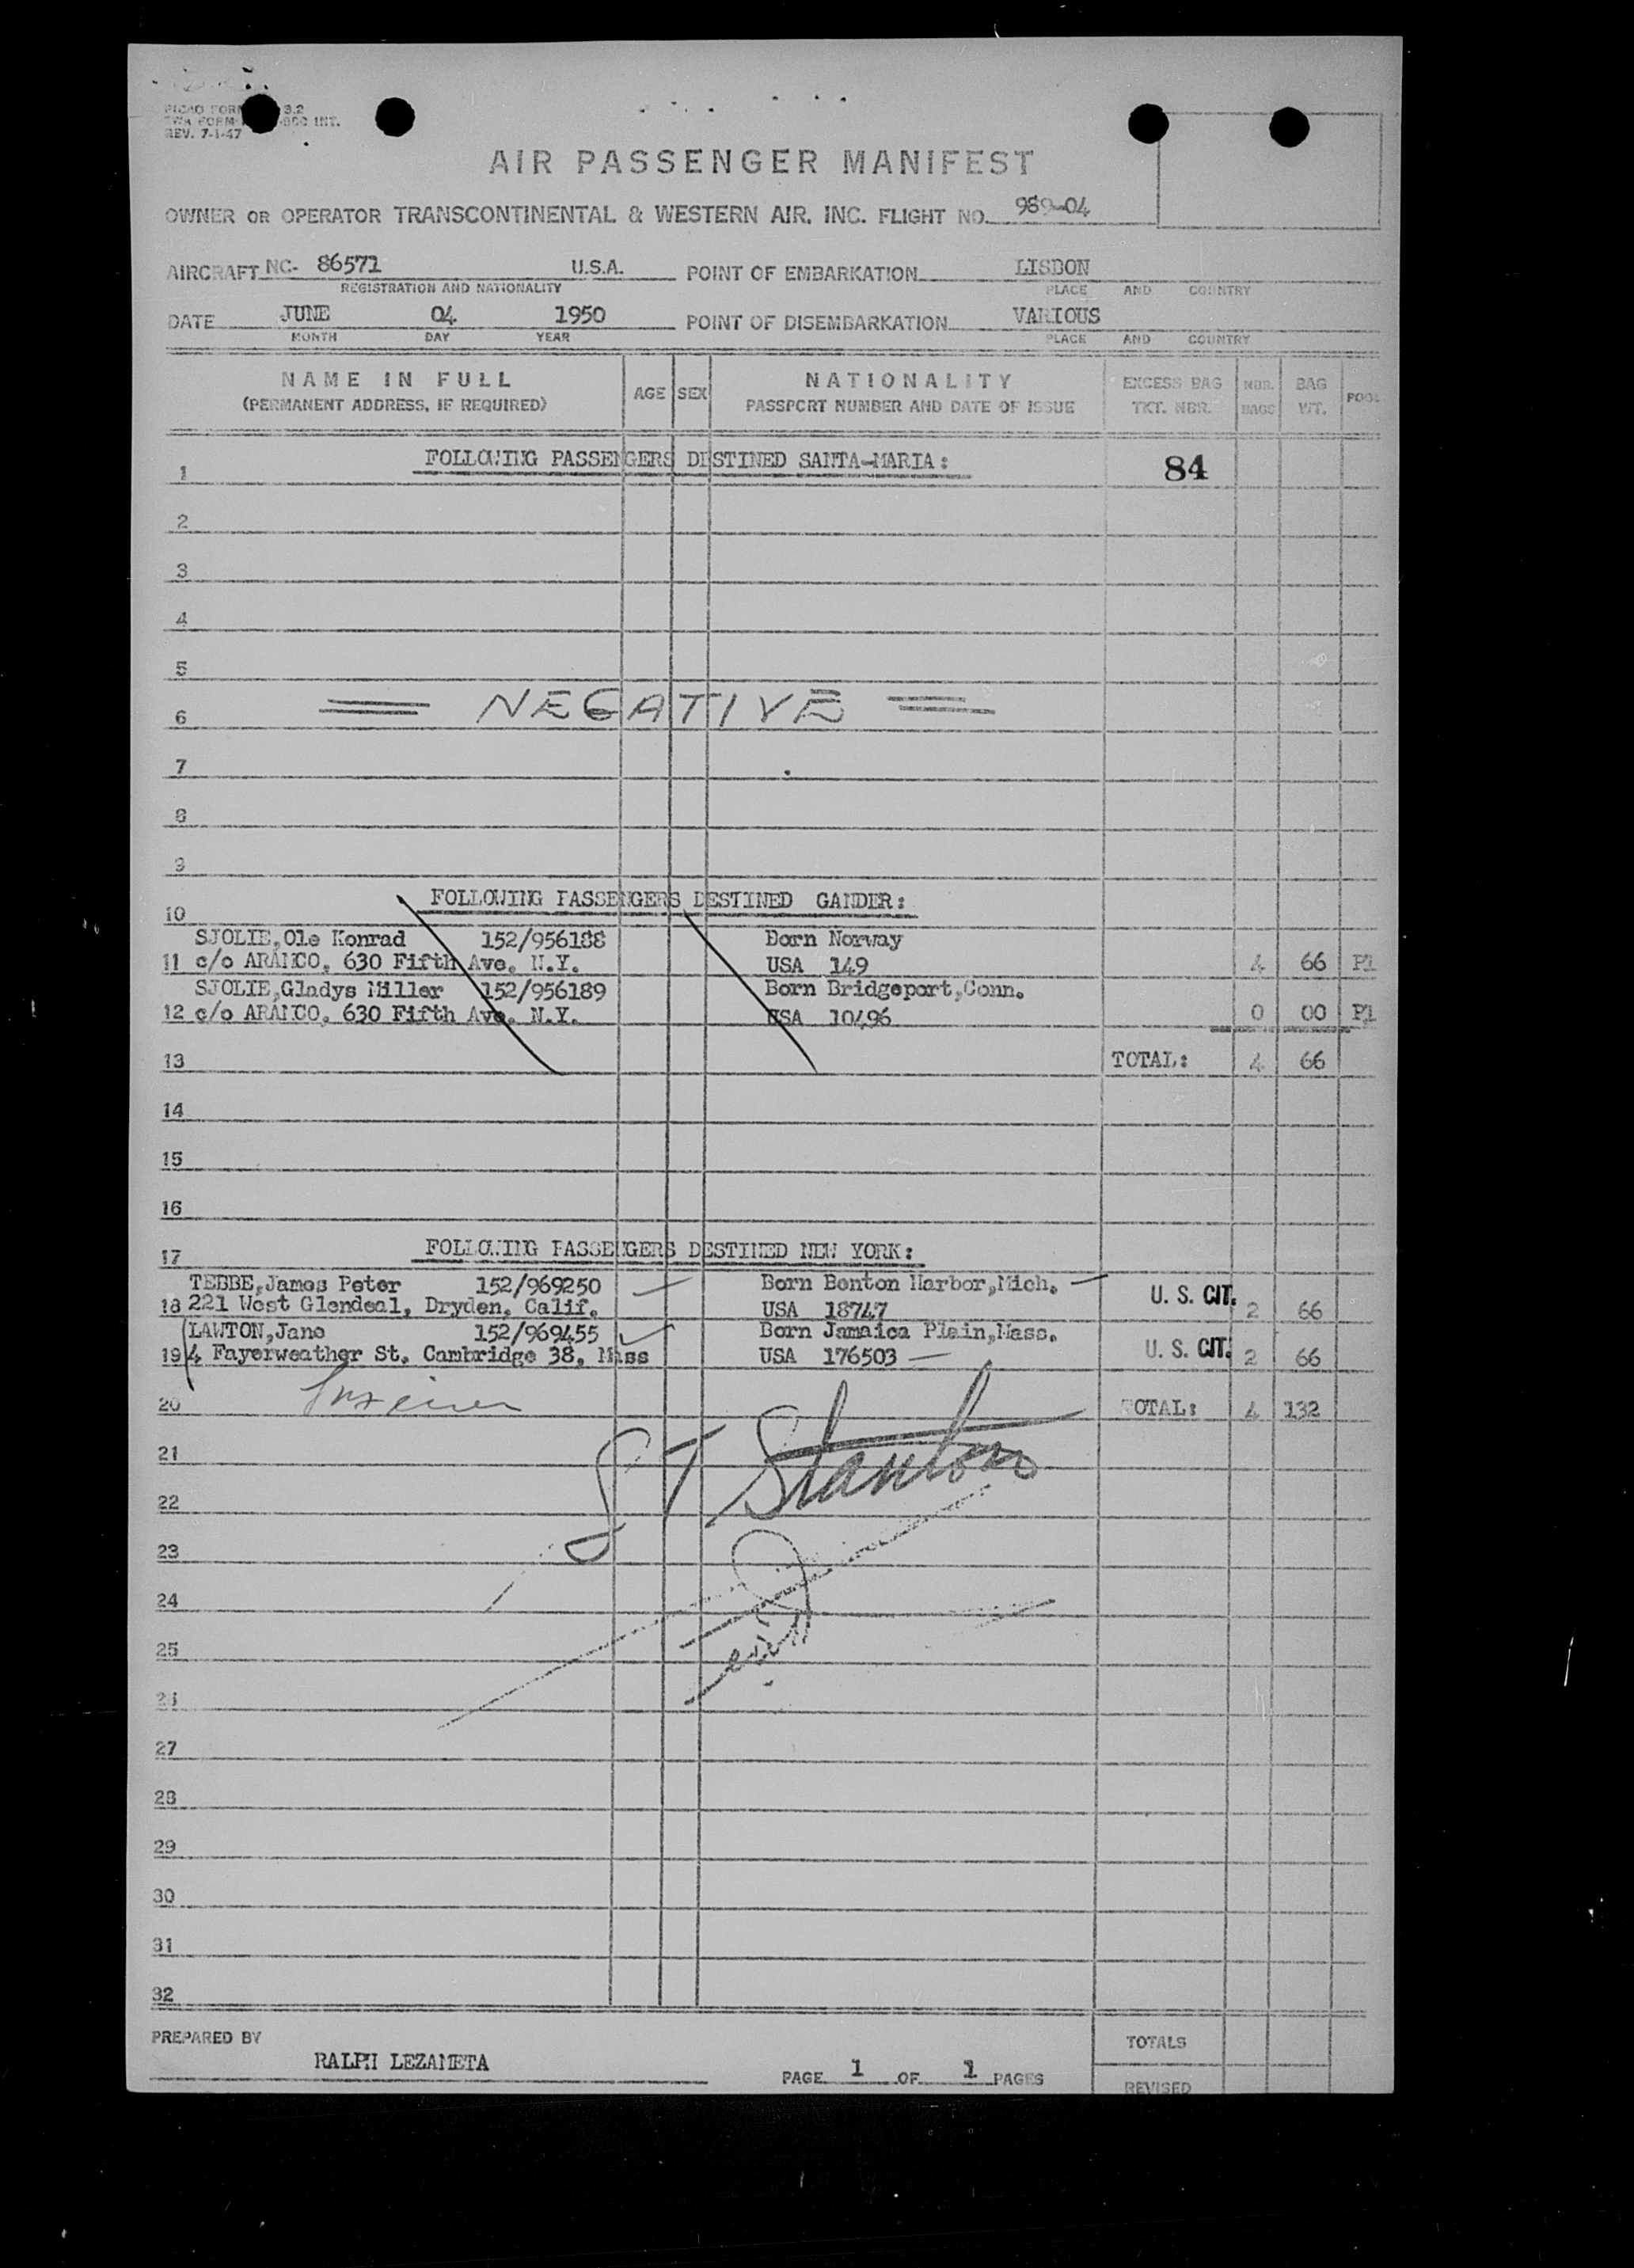 REV. 7-1-47
AIR PASSENGER MANIFEST
OWNER OR OPERATOR TRANSCONTINENTAL & WESTERN AIR, INC. FLIGHT NO. 989-04
AIRCRAFT NC- 86571 U.S.A. POINT OF EMBARKATION LISBON
REGISTRATION AND NATIONALITY PLACE AND COUNTRY
DATE JUNE 04 1950 POINT OF DISEMBARKATION VARIOUS
MONTH DAY YEAR PLACE AND COUNTRY
NAME IN FULL AGE SEX NATIONALITY EXCESS BAG NBR. BAG POOL
(PERMANENT ADDRESS, IF REQUIRED) PASSPORT NUMBER AND DATE OF ISSUE TKT. NBR. BAGS WT.
1 FOLLOWING PASSENGERS DESTINED SANTA-MARIA: 84
2
3
4
5
6 NEGATIVE
7
8
9
10 FOLLOWING PASSENGERS DESTINED GANDER:
SJOLIE,Ole Konrad 152/956188 Born Norway
11 c/o ARAMCO, 630 Fifth Ave. N.Y. USA 149 4 66 P1
SJOLIE,Gladys Miller 152/956189 Born Bridgeport,Conn.
12 c/o ARAMCO, 630 Fifth Ave. N.Y. USA 10496 0 00 P1
13 TOTAL: 4 66
14
15
16
17 FOLLOWING PASSENGERS DESTINED NEW YORK:
TEBBE,James Peter 152/969250 Born Benton Harbor,Mich. U. S. CIT.
18 221 West Glendeal, Dryden, Calif. USA 18747 2 66
LAWTON,Jane 152/969455 Born Jamaica Plain,Mass. U. S. CIT.
19 4 Fayerweather St. Cambridge 38, Mass USA 176503 2 66
20 TOTAL: 4 132
21 S T Stanton
22
23
24
25
26
27
28
29
30
31
32
PREPARED BY TOTALS
RALPH LEZAMETA
PAGE 1 OF 1 PAGES
REVISED